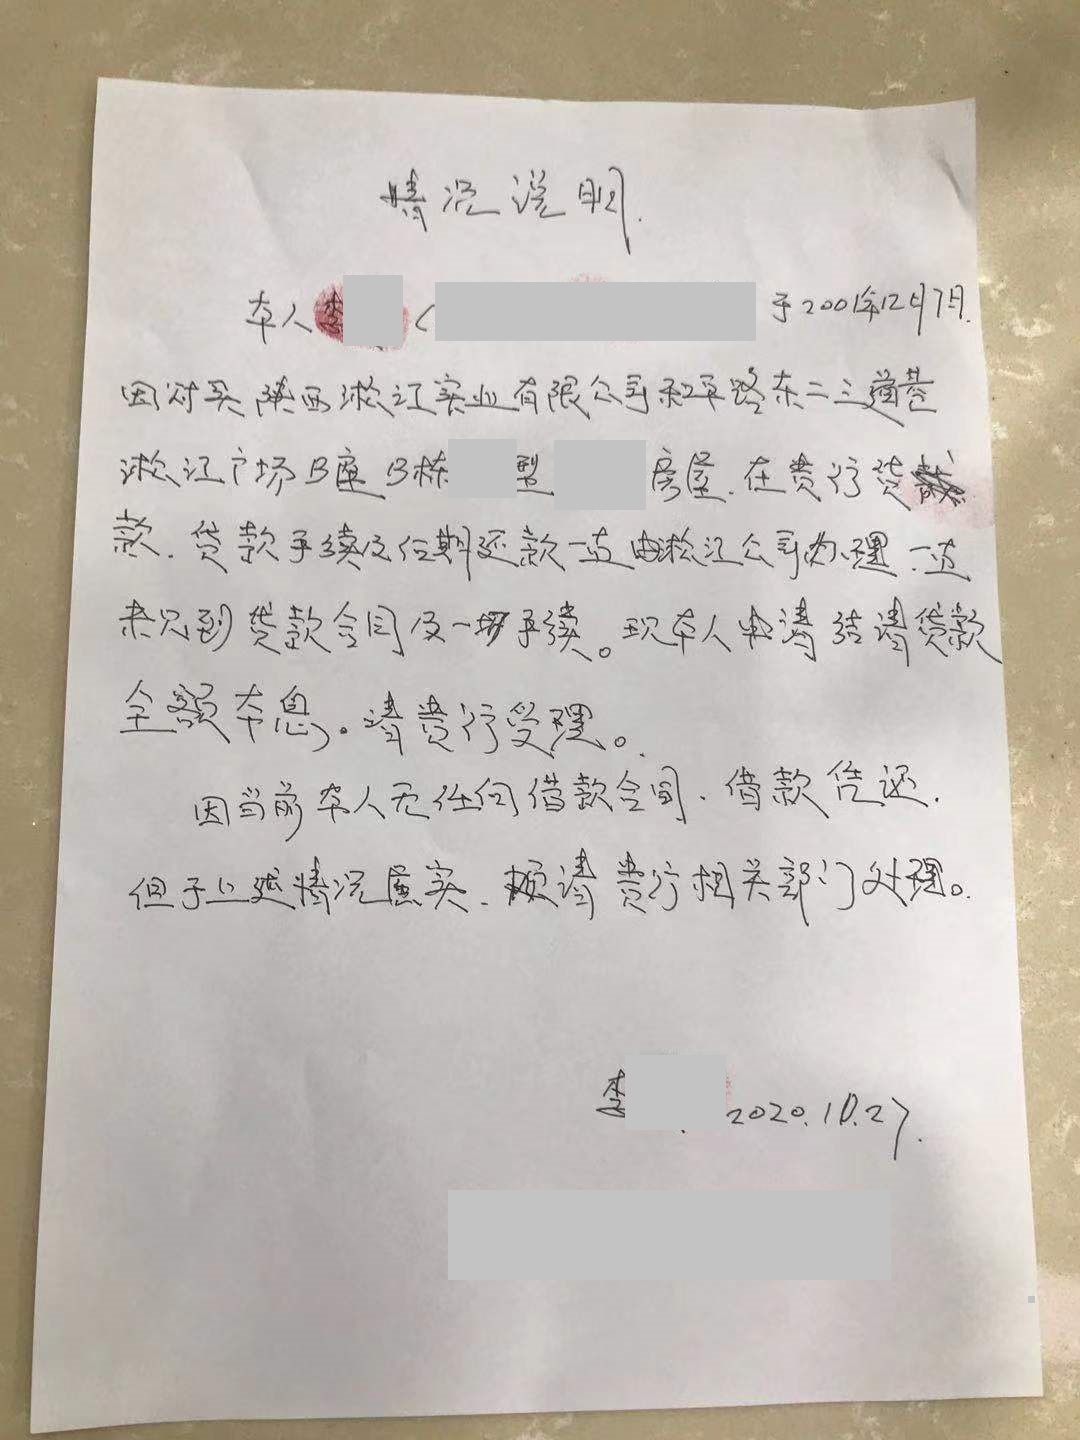 情况说明.
本人李（ 于2001年12月7日.
因购买陕西淞江实业有限公司和平路东二三道巷
淞江广场B座B栋 型 房屋.在贵行贷
款.贷款手续及后期还款一直由淞江公司办理.一直
未见到贷款合同及一切手续。现本人申请结清贷款
全额本息。请贵行受理。
因当前本人无任何借款合同.借款凭还.
但于上述情况属实.烦请贵行相关部门处理。
李 2020.10.27.